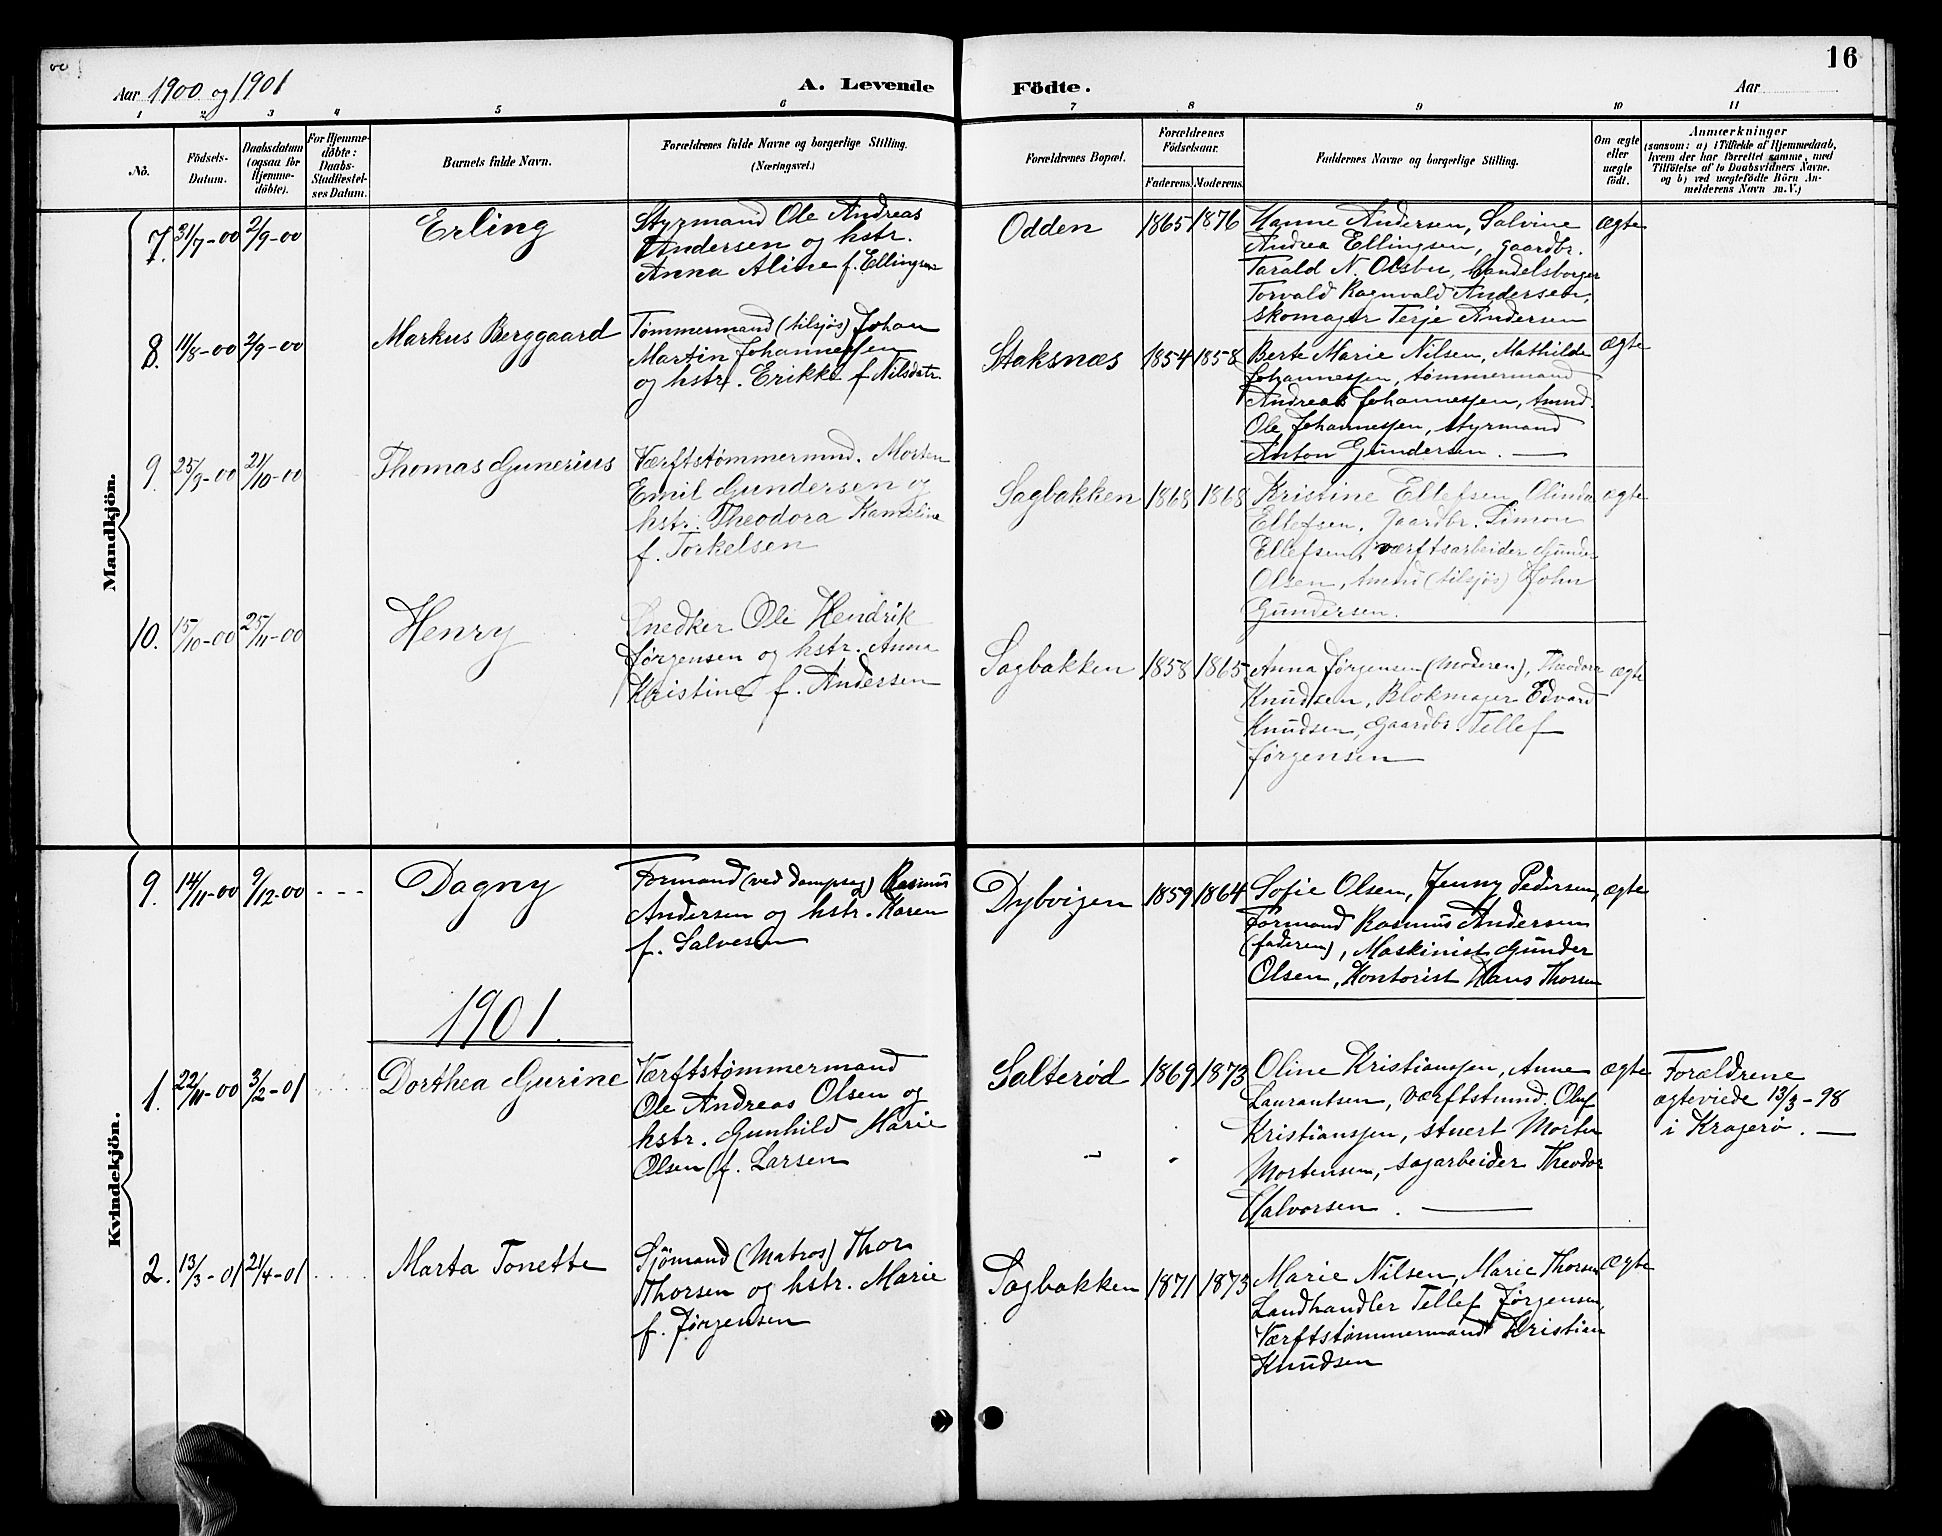 16
Aar 1900 og 1901
A. Levende Födte.
Aar
1 2 3 4 5 6 7 8 9 10 11
No.
Födsels-Datum.
Daabsdatum (ogsaa för Hjemme-döbte).
For Hjemme-döbte: Daabs-Stadfæstel-ses Datum.
Barnets fulde Navn.
Forældrenes fulde Navne og borgerlige Stilling.
(Næringsvei.)
Forældrenes Bopæl.
Forældrenes Födselsaar.
Faderens. Moderens.
Faddernes Navne og borgerlige Stilling.
Om ægte eller uægte födt.
Anmærkninger
(saasom: a) i Tilfælde af Hjemmedaab,
hvem der har forrettet samme, med
Tilföielse af to Daabsvidners Navne.
og b) ved uægtefödte Börn An-
melderens Navn m. V.)
Mandkjön.
7. 31/7-00 2/9-00 Erling
Styrmand Ole Andreas
Andersen og hstr.
Anna Aline f. Ellingsen
Odden 1865 1876
Hanne Andersen, Salvine
Andrea Ellingsen, gaardbr.
Tarald N. Olsbu, handelsborger
Torvald Ragnvald Andersen,
skomager Terje Andersen
ægte
8. 11/8-00 2/9-00 Markus Berggaard
Tømmermand (tilsjøs) Johan
Martin Johannessen
og hstr. Erikke f. Nilsdatr.
Staksnæs 1854 1858
Berte Marie Nilsen, Mathilde
Johannessen, tømmermand
Andreas Johannessen, tmmd.
Ole Johannessen, styrmand
Anton Gundersen.
ægte
9. 25/9-00 21/10-00 Thomas Gunerius
Værftstømmermnd. Morten
Emil Gundersen og
hstr. Theodora
f. Torkelsen
Sagbakken 1868 1868
Kristine Ellefsen, Olinda
Ellefsen, gaardbr. Simon
Ellefsen, værftsarbeider Gunder
Olsen, tmmd (tilsjös) John
Gundersen.
ægte
10. 15/10-00 25/11-00 Henry
Snedker Ole Hendrik
Jørgensen og hstr. Anna
Kristine f. Andersen
Sagbakken 1858 1865
Anna Jørgensen (Moderen), Theodora
Knudsen, Blokmager Edvard
Knudsen, gaardbr. Tellef
Jørgensen
ægte
Kvindekjön.
9. 14/11-00 9/12-00 Dagny
Formand (ved dampsag) Rasmus
Andersen og hstr. Karen
f. Salvesen
Dybvigen 1859 1864
Sofie Olsen, Jenny Pedersen,
Formand Rasmus Andersen
(faderen), Maskinist Gunder
Olsen, Kontorist Hans Thorsen
ægte
1901.
1. 22/11-00 3/2-01 Dorthea Gurine
Værftstømmermand
Ole Andreas Olsen og
hstr. Gunhild Marie
Olsen f. Larsen
Salterød 1869 1873
Oline Kristianssen, Anne
Laurantsen, værftstmnd. Oluf
Kristianssen, stuert Morten
Mortensen, sagarbeider Theodor
Halvorsen.
ægte
Forældrene
ægteviede 13/3-98
i Kragerø.
2. 13/3-01 21/4-01 Marta Tonette
Sjömand (Matros) Thor
Thorsen og hstr. Marie
f. Jørgensen
Sagbakken 1871 1873
Marie Nilsen, Marie Thorsen
Landhandler Tellef Jørgensen,
Værftstømmermand Kristian
Knudsen
Ægte